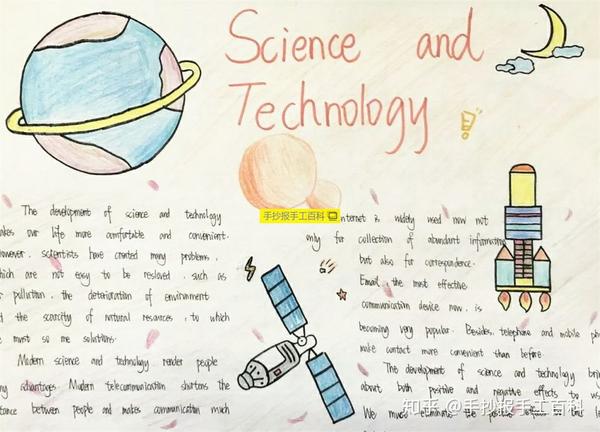 Science and
Technology
手抄报手工百科
The development of science and technology
our life more comfortable and convenient.
However, scientists have created many problems,
which are not easy to be reslaved, such as
pollution, the deterioration of environment
the scarcity of natural resources, to which
must so me solutions.
Modern science and technology render people
advantages Modern telecommunication shortens the
between people and makes communication much
is widely used now not
only for collection of abundant information
but also for correspondence.
Email, the most effective
communication device now, is
becoming very popular. Besides, telephone and mobile
make contact more convenient than before.
The development of science and technology
about both positive and negative effects to us.
We must eliminate the
知乎 @手抄报手工百科